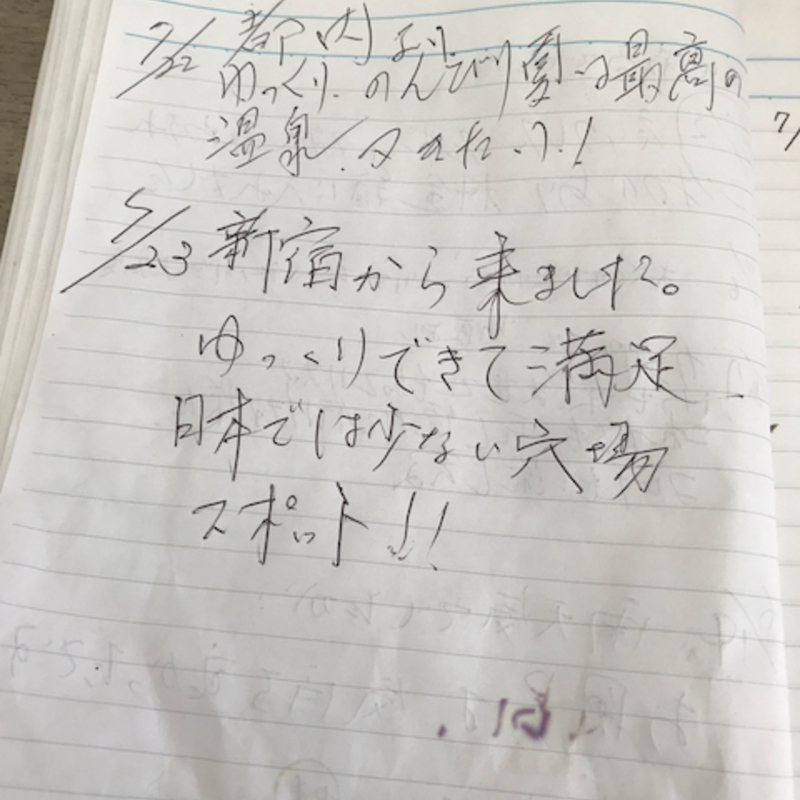 7/22 都内より
ゆっくり、のんびり夏の最高の
温泉、又きたい!
7/23 新宿から来ました。
ゆっくりできて満足
日本では少ない穴場
スポット!!
7/